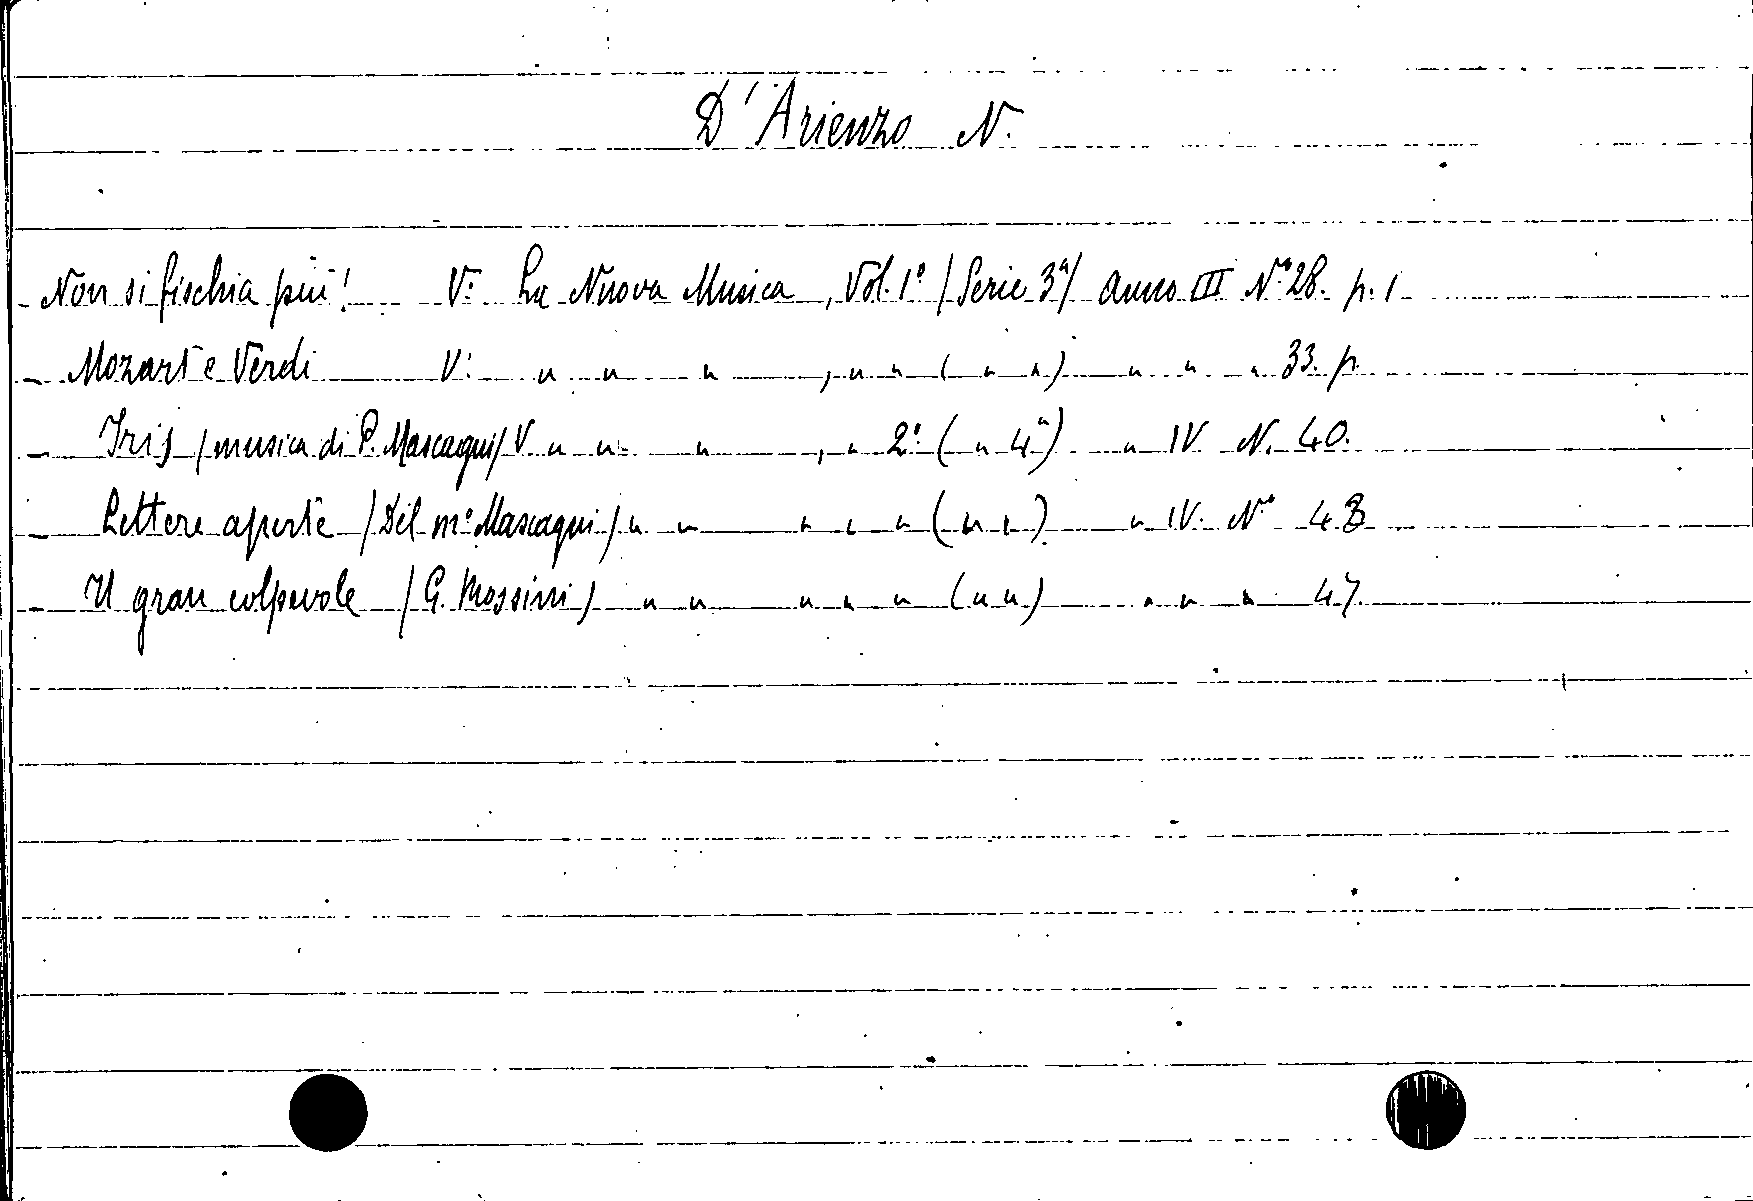 D'Arienzo N.
- Non si fischia più! V: La Nuova Musica, Vol. 1° (Serie 3ª) anno III N° 28. p. 1
- Mozart e Verdi V: " " " , " " ( " " ) " " " 33. p.
- Iris (musica di P. Mascagni) V " " " , " 2° ( " 4ª) " IV N. 40.
- Lettere aperte (Del m° Mascagni) " " " " " ( " " ) " IV. N° 43
- Il gran colpevole (G. Rossini) " " " " " ( " " ) " " " 47.